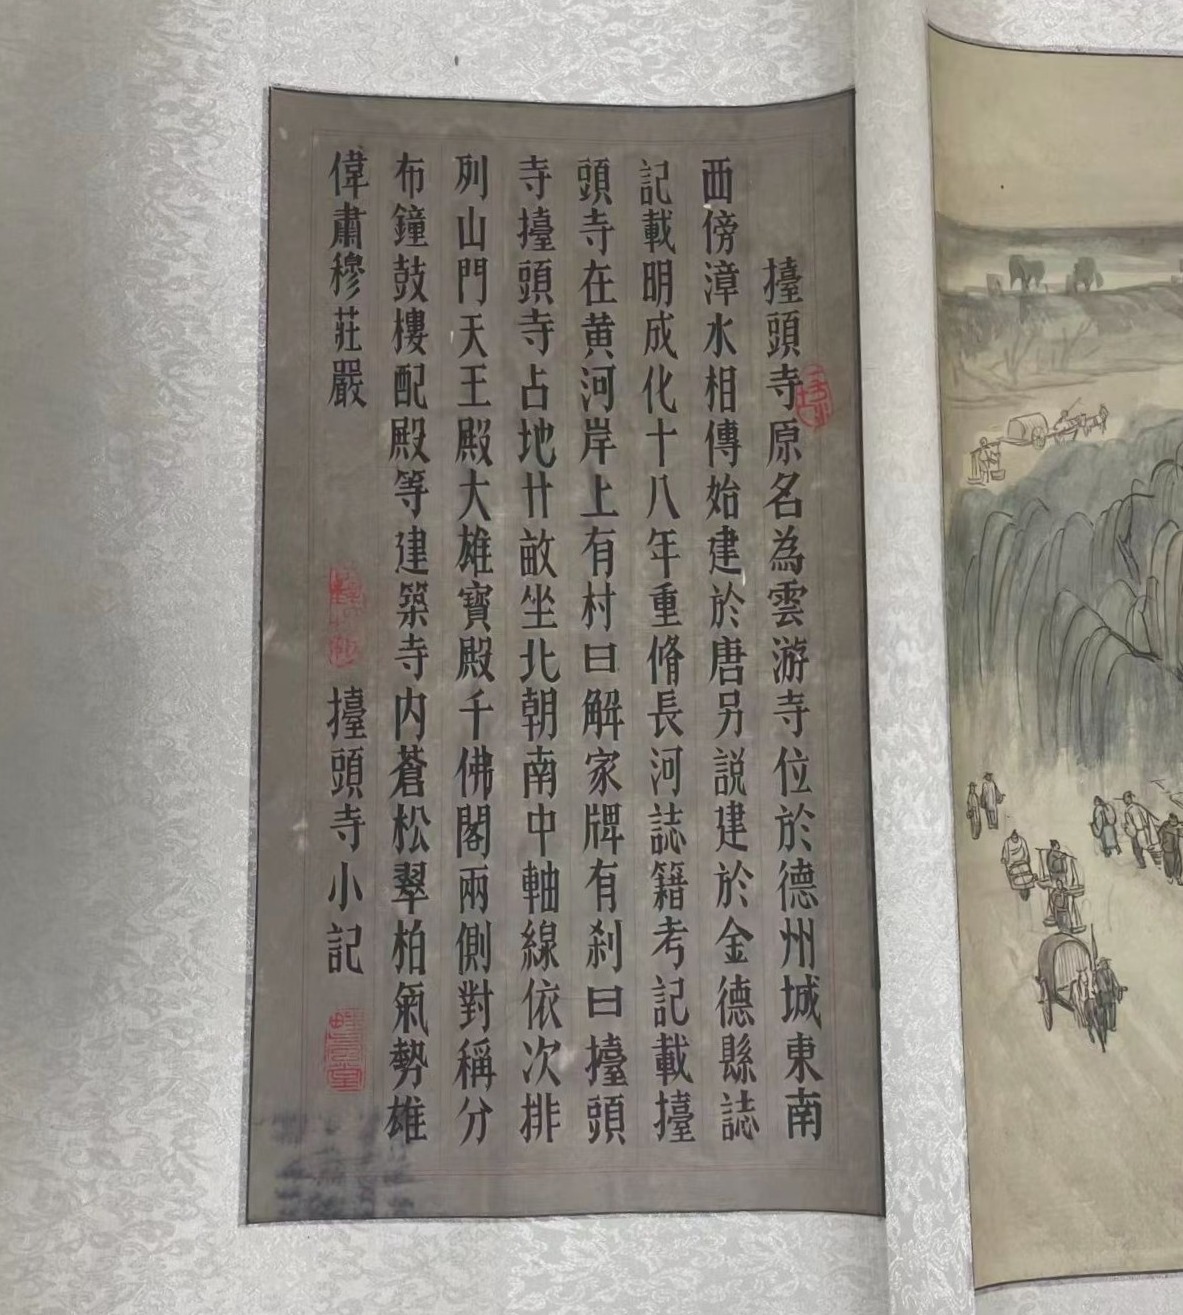 擡頭寺原名為雲游寺位於德州城東南
西傍漳水相傳始建於唐另説建於金德縣誌
記載明成化十八年重脩長河誌籍考記載擡
頭寺在黄河岸上有村曰解家牌有刹曰擡頭
寺擡頭寺占地廿畝坐北朝南中軸線依次排
列山門天王殿大雄寶殿千佛閣兩側對稱分
布鐘鼓樓配殿等建築寺内蒼松翠柏氣勢雄
偉肅穆莊嚴
擡頭寺小記